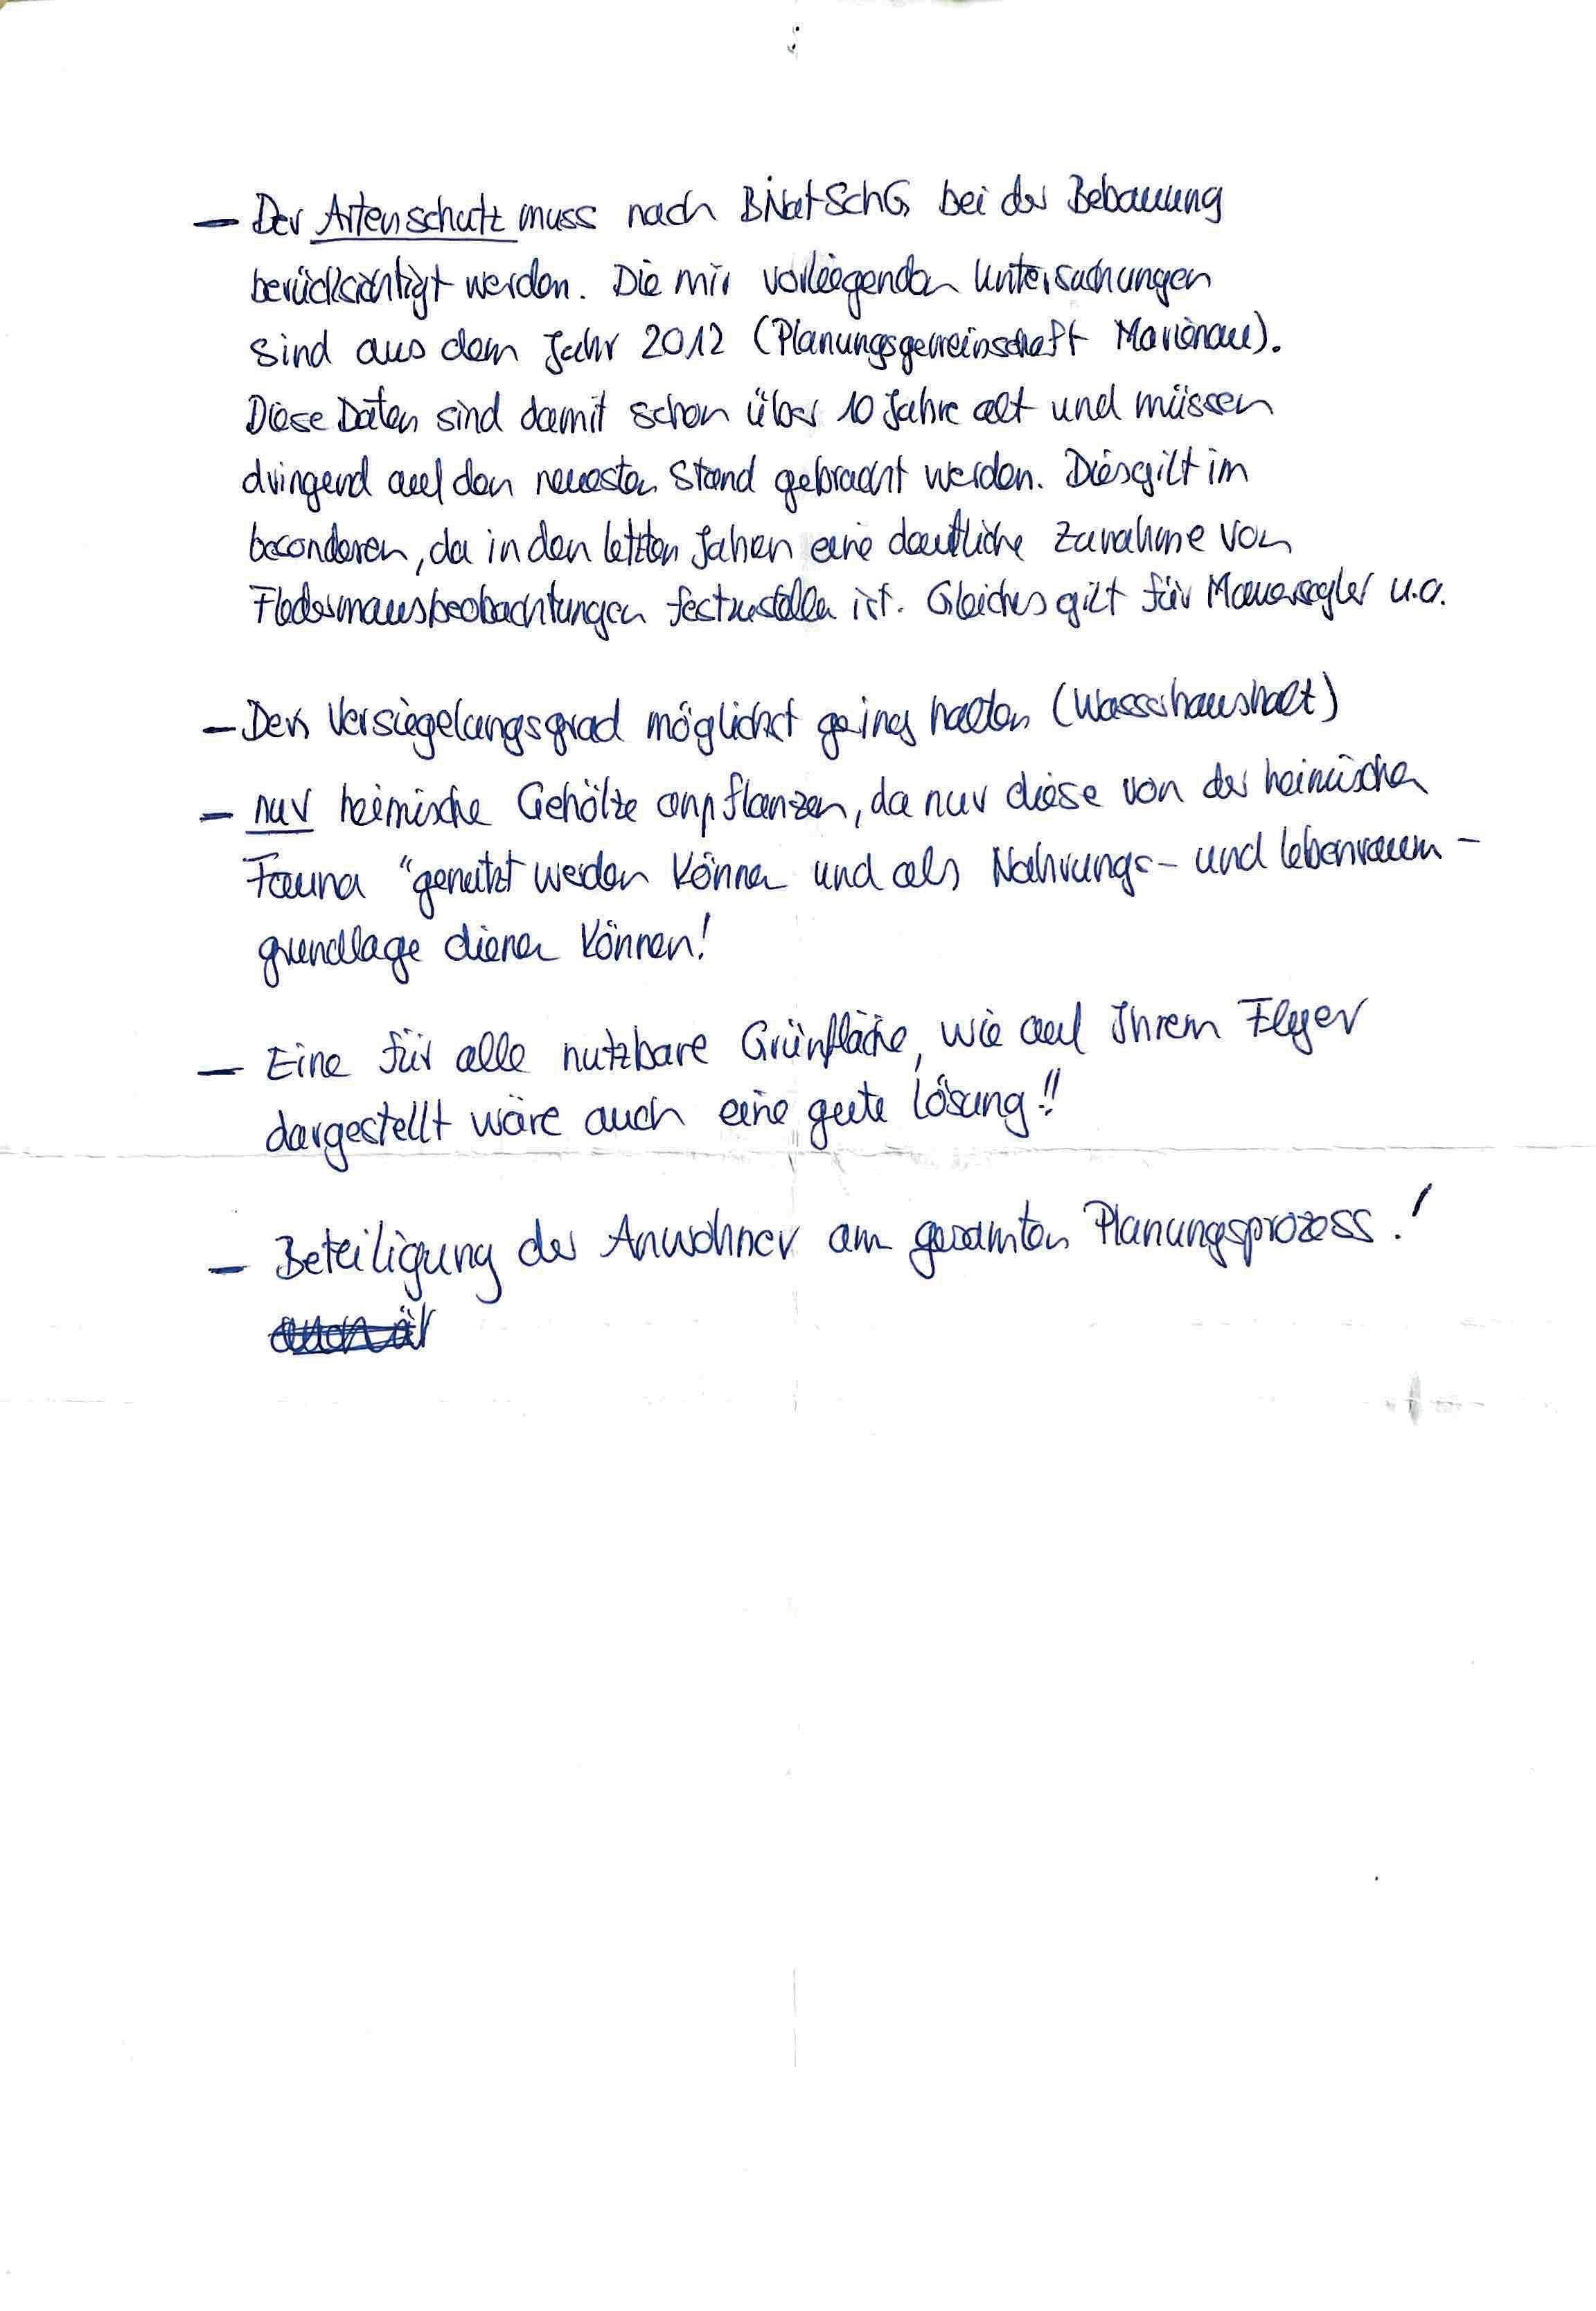 – Der Artenschutz muss nach BNatSchG bei der Bebauung
berücksichtigt werden. Die mir vorliegenden Untersuchungen
sind aus dem Jahr 2012 (Planungsgemeinschaft Marienau).
Diese Daten sind damit schon über 10 Jahre alt und müssen
dringend auf den neuesten Stand gebracht werden. Dies gilt im
besonderen, da in den letzten Jahren eine deutliche Zunahme von
Fledermausbeobachtungen festzustellen ist. Gleiches gilt für Mauersegler u.a.
– Den Versiegelungsgrad möglichst gering halten (Wasserhaushalt)
– nur heimische Gehölze anpflanzen, da nur diese von der heimischen
Fauna "genutzt werden können und als Nahrungs- und Lebenraum-
grundlage dienen können!
– Eine für alle nutzbare Grünfläche, wie auf Ihrem Flyer
dargestellt wäre auch eine gute Lösung!!
– Beteiligung der Anwohner am gesamten Planungsprozess!